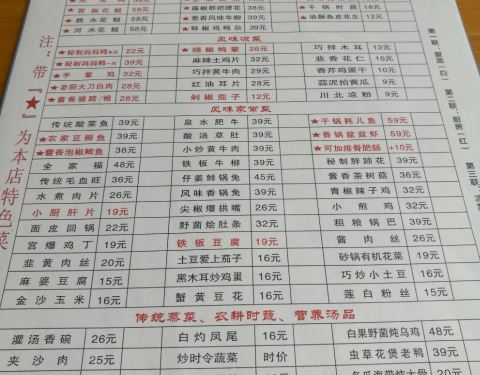 ★酱椒把把腰 39元
咸水花鲢 58元 ★葱香风味牛柳 39元 ★浓酥鱼皮花生 12元
河水花鲢 58元 ★鲜椒鸡杂 29元
风味凉菜
★秘制妈妈鸭 22元 ★烧椒鸭掌 26元 巧拌木耳 12元
★秘制妈妈鸭 39元 麻辣土鸡片 32元 韭香花仁 15元
★手掌鸡 32元 巧拌黄牛肉 29元 香芹鸡蛋干 10元
★老厨大刀白肉 28元 红油耳片 28元 蒜泥拍黄瓜 9元
★酱香猪蹄/根 28元 ★剁椒茄子 12元 川北凉粉 9元
风味家常菜
传统酸菜鱼 39元 泉水肥牛 39元 ★干锅耗儿鱼 59元
★农家豆瓣鱼 39元 酸汤草肚 39元 ★香锅盆盆虾 59元
★藿香泡椒鲫鱼 38元 小炒黄牛肉 39元 ★可加排骨肥肠 +10元
全家福 48元 铁板牛柳 39元 秘制胖蹄花 39元
传统毛血旺 36元 仔姜鲜锅兔 45元 酱香茶树菇 36元
水煮肉片 26元 风味香锅兔 39元 青椒辣子鸡 32元
小厨肝片 19元 尖椒爆拱嘴 26元 小煎鸡 32元
面皮回锅 22元 野菌烩肚条 32元 粗粮锅巴 39元
宫爆鸡丁 19元 铁板豆腐 19元 酱肉丝 26元
韭黄肉丝 20元 土豆爱上茄子 16元 砂锅有机花菜 19元
麻婆豆腐 15元 黑木耳炒鸡蛋 16元 巧炒小土豆 16元
金沙玉米 16元 蟹黄豆花 16元 莲白粉丝 15元
传统蒸菜、农耕时蔬、营养汤品
灌汤香碗 26元 白灼凤尾 16元 白果野菌炖乌鸡 48元
夹沙肉 25元 炒时令蔬菜 时价 虫草花煲老鸭 39元
20元
注：带『★』为本店特色菜
第一联：留底(白) 第二联：厨房(红) 第三联：